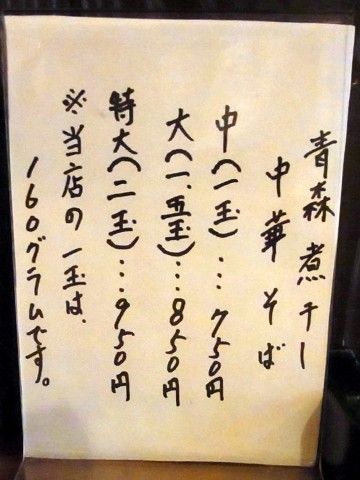 青森煮干し
中華そば
中(一玉)…750円
大(一、五玉)…850円
特大(二玉)…950円
※当店の一玉は、
160グラムです。